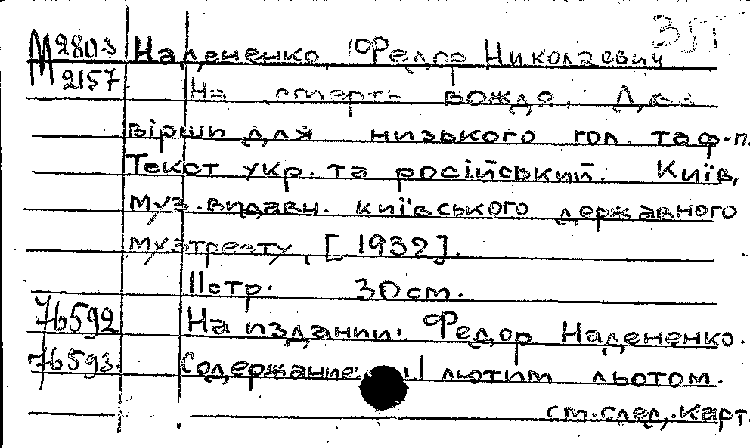 М 2803 Надененко, Федор Николаевич
2157 На смерть вождя. Два
вірши для низького гол. та ф-п.
Текст укр. та російський. Київ,
Муз. видавн. київського державного
музтресту, [1932].
11 стр. 30 см.
76592 На издании: Федор Надененко.
76593 Содержание: лютим льотом.
см. след. карт.